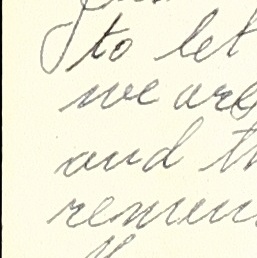 to let
we are
and th
remem